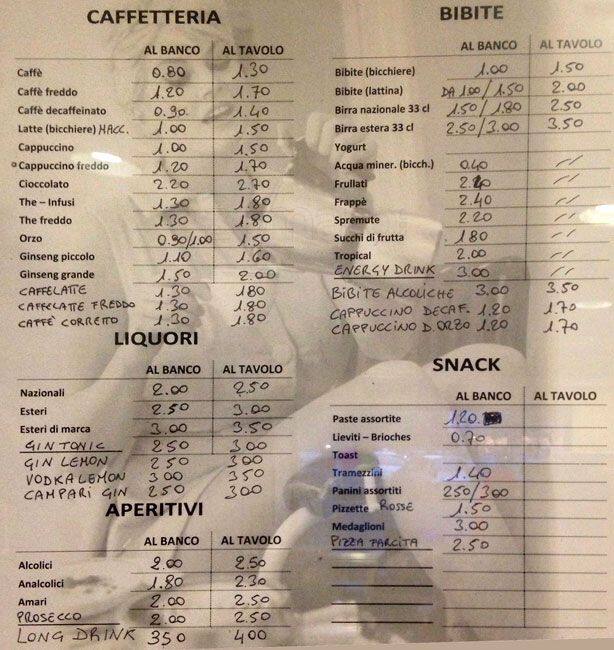 CAFFETTERIA
AL BANCO AL TAVOLO
Caffè 0.80 1.30
Caffè freddo 1.20 1.70
Caffè decaffeinato 0.90 1.40
Latte (bicchiere) MACC. 1.00 1.50
Cappuccino 1.00 1.50
Cappuccino freddo 1.20 1.70
Cioccolato 2.20 2.70
The – Infusi 1.30 1.80
The freddo 1.30 1.80
Orzo 0.90/1.00 1.50
Ginseng piccolo 1.10 1.60
Ginseng grande 1.50 2.00
CAFFELATTE 1.30 180
CAFFELATTE FREDDO 1.30 1.80
CAFFÈ CORRETTO 1.30 1.80
LIQUORI
AL BANCO AL TAVOLO
Nazionali 2.00 2.50
Esteri 2.50 3.00
Esteri di marca 3.00 3.50
GIN TONIC 250 300
GIN LEMON 250 300
VODKA LEMON 300 350
CAMPARI GIN 250 300
APERITIVI
AL BANCO AL TAVOLO
Alcolici 2.00 2.50
Analcolici 1.80 2.30
Amari 2.00 2.50
PROSECCO 2.00 2.50
LONG DRINK 350 400
BIBITE
AL BANCO AL TAVOLO
Bibite (bicchiere) 1.00 1.50
Bibite (lattina) DA 1.00/1.50 2.00
Birra nazionale 33 cl 1.50/1.80 2.50
Birra estera 33 cl 2.50/3.00 3.50
Yogurt
Acqua miner. (bicch.) 0.40 //
Frullati 2.40 //
Frappè 2.40 //
Spremute 2.20 //
Succhi di frutta 180 //
Tropical 2.00 //
ENERGY DRINK 3.00 //
BIBITE ALCOLICHE 3.00 3.50
CAPPUCCINO DECAF. 1.20 1.70
CAPPUCCINO D. ORZO 1.20 1.70
SNACK
AL BANCO AL TAVOLO
Paste assortite 1.20
Lieviti – Brioches 0.70
Toast
Tramezzini 1.40
Panini assortiti 250/300
Pizzette ROSSE 1.50
Medaglioni 3.00
PIZZA FARCITA 2.50